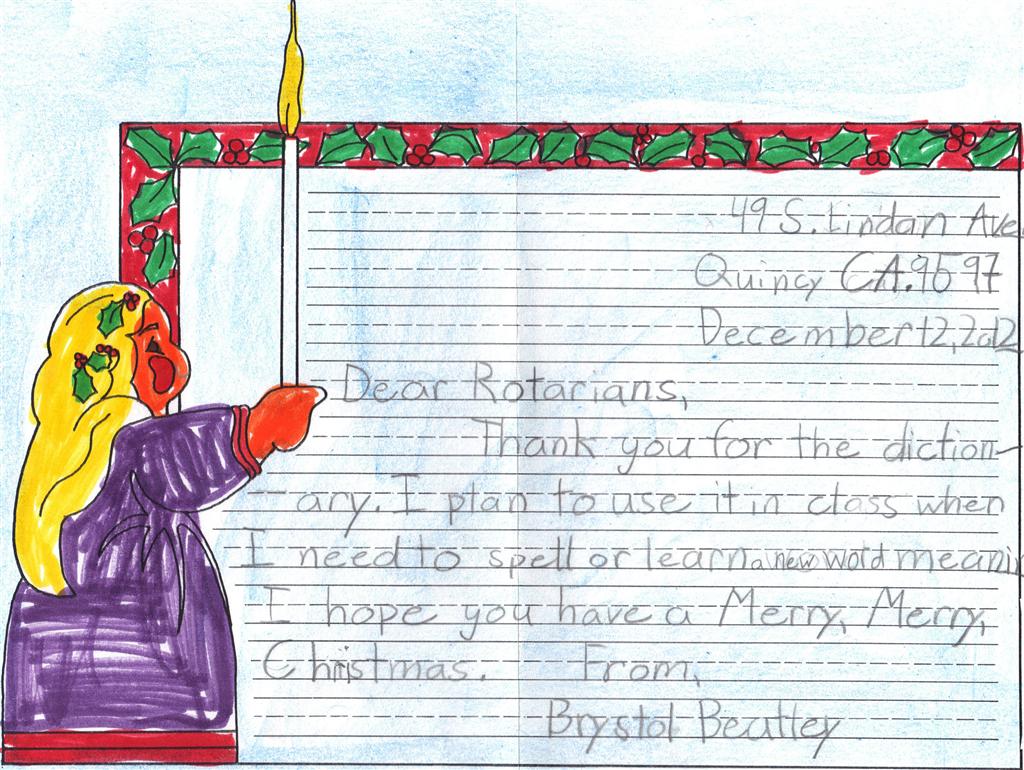 49 S. Lindan Ave
Quincy CA. 95 97
December 12, 2012
Dear Rotarians,
Thank you for the diction-
ary. I plan to use it in class when
I need to spell or learn a new word meanin
I hope you have a Merry, Merry,
Christmas. From,
Brystol Beatley